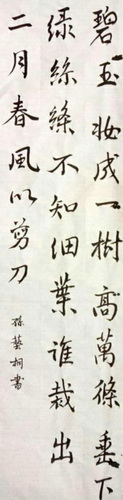 碧玉妝成一樹高萬條垂下
绿絲絛不知细葉谁裁出
二月春風似剪刀
孫藝桐書